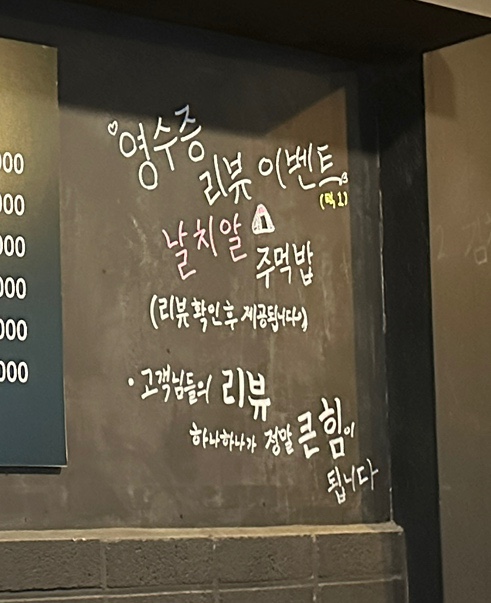 000
000
000
000
000
000
♡영수증
리뷰 이벤트
(택 1)
날치알
주먹밥
(리뷰 확인 후 제공됩니다)
· 고객님들의 리뷰
하나하나가 정말 큰 힘이
됩니다